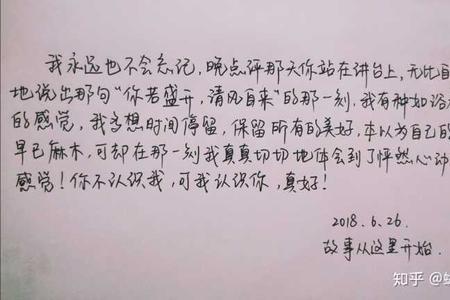 我永远也不会忘记，晚点评那天你站在讲台上，无比自
地说出那句“你若盛开，清风自来”的那一刻，我有种如浴
的感觉，我多想时间停留，保留所有的美好，本以为自己的
早已麻木，可却在那一刻我真真切切地体会到了怦然心动
感觉！你不认识我，可我认识你，真好！
2018.6.26.
故事从这里开始.
知乎 @